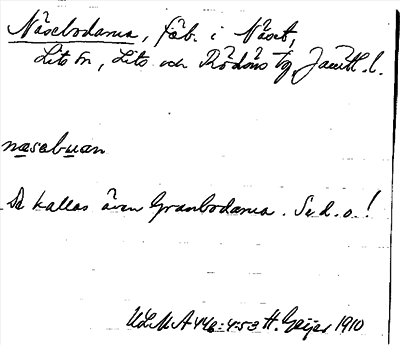 Näsebodarna, fäb. i Näset,
Lits sn, Lits och Rödöns tg, Jämtl. l.
næsebuan
De kallas även Granbodarna. Se d. o.!
ULMA 446:4:53 H. Geijer 1910